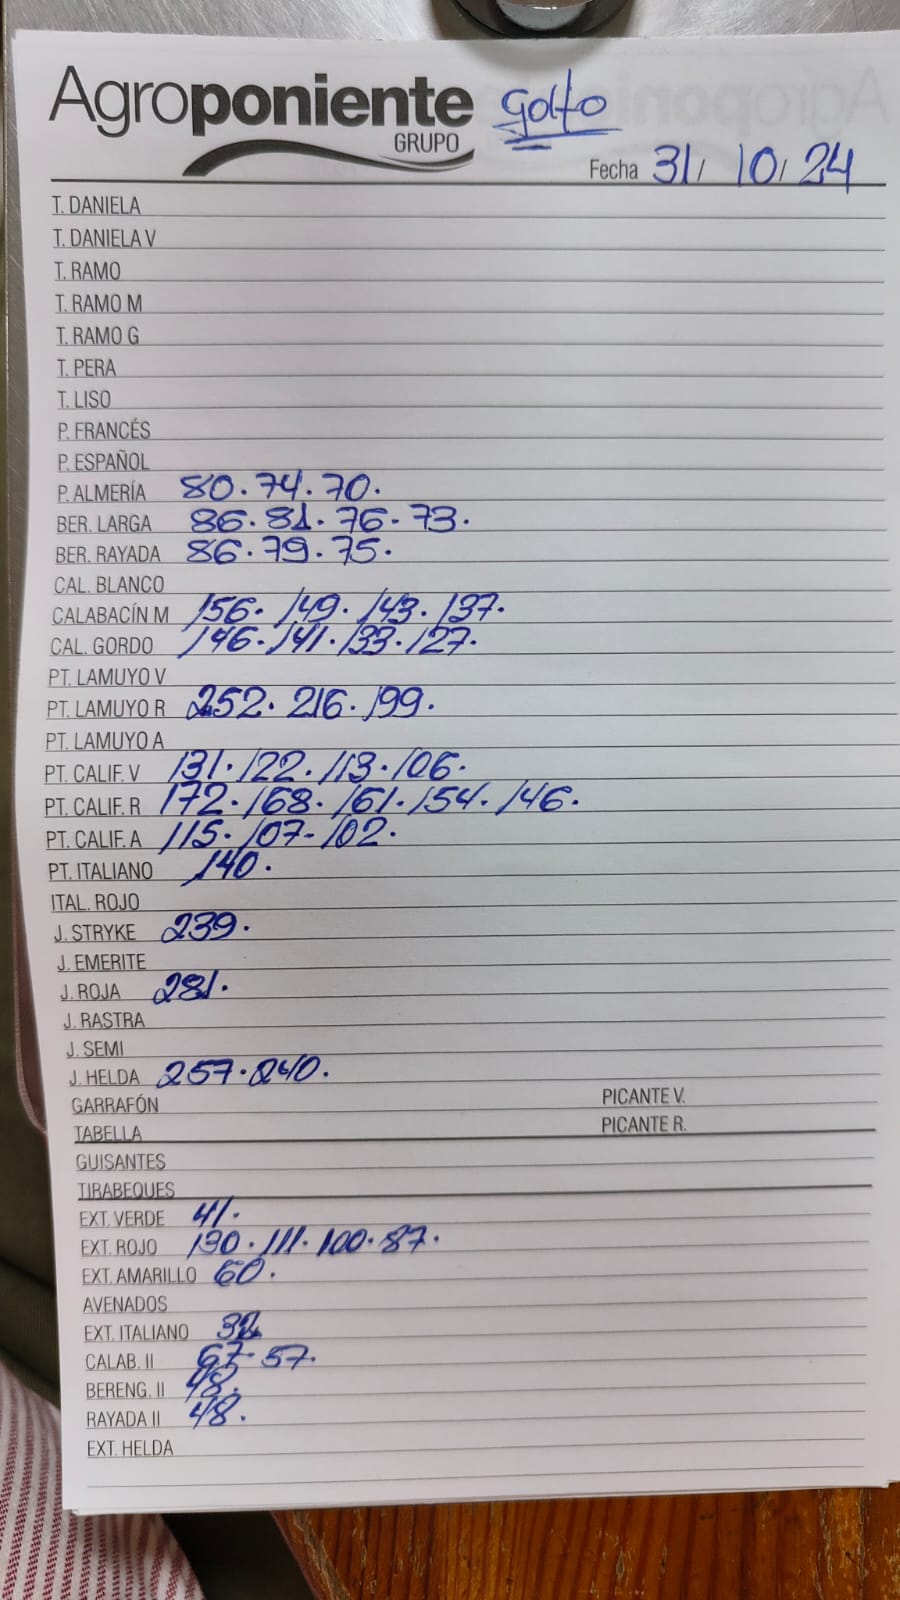 Agroponiente Golfo
GRUPO
Fecha 31/ 10/ 24
T. DANIELA
T. DANIELA V
T. RAMO
T. RAMO M
T. RAMO G
T. PERA
T. LISO
P. FRANCÉS
P. ESPAÑOL
P. ALMERÍA 80. 74. 70.
BER. LARGA 86. 81. 76. 73.
BER. RAYADA 86. 79. 75.
CAL. BLANCO
CALABACÍN M 156. 149. 143. 137.
CAL. GORDO 146. 141. 133. 127.
PT. LAMUYO V
PT. LAMUYO R 252. 216. 199.
PT. LAMUYO A
PT. CALIF. V 131. 122. 113. 106.
PT. CALIF. R 172. 168. 161. 154. 146.
PT. CALIF. A 115. 107- 102.
PT. ITALIANO 140.
ITAL. ROJO
J. STRYKE 239.
J. EMERITE
J. ROJA 281.
J. RASTRA
J. SEMI
J. HELDA 257. 240.
GARRAFÓN PICANTE V.
TABELLA PICANTE R.
GUISANTES
TIRABEQUES
EXT. VERDE 41.
EXT. ROJO 130. 111. 100. 87.
EXT. AMARILLO 60.
AVENADOS
EXT. ITALIANO 32
CALAB. II 67. 57.
BERENG. II 48.
RAYADA II 48.
EXT. HELDA